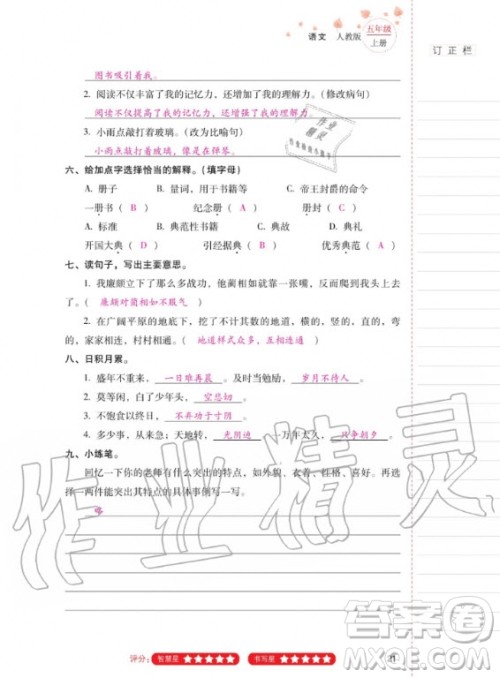 语文 人教版 五年级 上册
订正栏
图书吸引着我。
2. 阅读不仅丰富了我的记忆力，还增加了我的理解力。（修改病句）
阅读不仅提高了我的记忆力，还增强了我的理解力。
3. 小雨点敲打着玻璃。（改为比喻句）
小雨点敲打着玻璃，像是在弹琴。
六、给加点字选择恰当的解释。（填字母）
A. 册子 B. 量词，用于书籍等 C. 帝王封爵的命令
一册书（ B ） 纪念册（ A ） 册封（ C ）
A. 标准 B. 典范性书籍 C. 典故 D. 典礼
开国大典（ D ） 引经据典（ B ） 优秀典范（ A ）
七、读句子，写出主要意思。
1. 我廉颇立下了那么多战功，他蔺相如就靠一张嘴，反而爬到我头上去
了。（ 廉颇对蔺相如不服气 ）
2. 在广阔平原的地底下，挖了不计其数的地道，横的，竖的，直的，弯
的，家家相连，村村相通。（ 地道样式众多，互相连通 ）
八、日积月累。
1. 盛年不重来，一日难再晨。及时当勉励，岁月不待人。
2. 莫等闲，白了少年头，空悲切。
3. 不饱食以终日，不弃功于寸阴。
4. 多少事，从来急；天地转，光阴迫。一万年太久，只争朝夕。
九、小练笔。
回忆一下你的老师有什么突出的特点，如外貌、衣着、性格、喜好。再选
择一两件能突出其特点的具体事例写一写。
略
作业精灵
答案圈
MXQE.COM
评分： 智慧星 ★★★★★ 书写星 ★★★★★